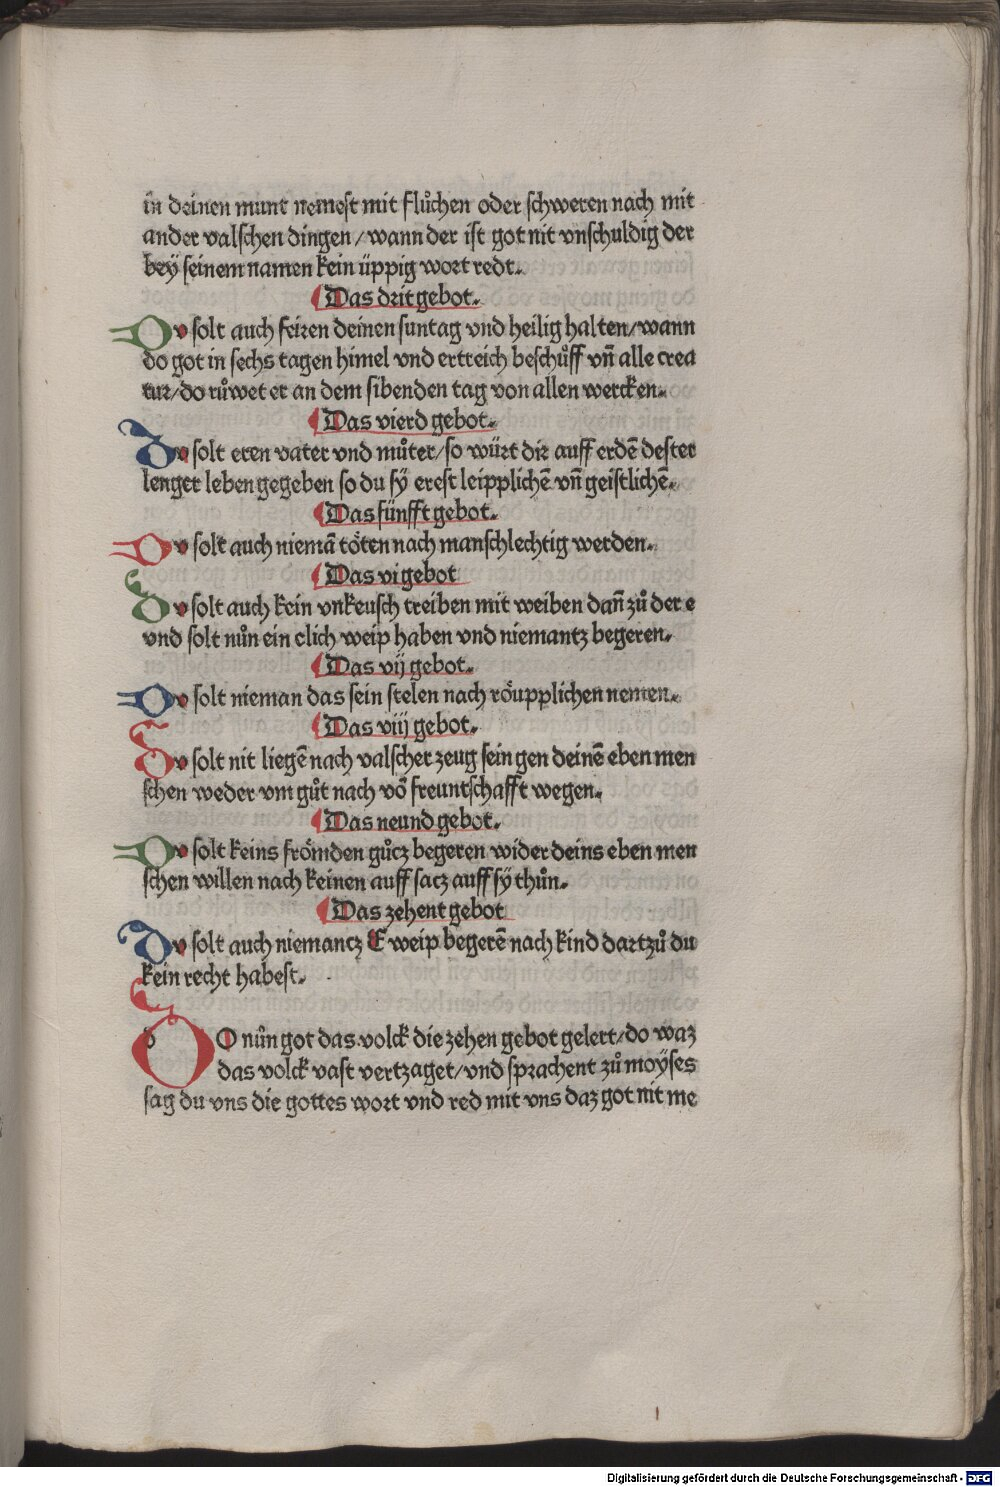 in deinen munt nemest mit flůchen oder schweren nach mit
ander valschen dingen / wann der ist got nit vnschuldig der
beÿ seinem namen kein üppig wort redt.
Das drit gebot.
Dv solt auch feiren deinen suntag vnd heilig halten / wann
do got in sechs tagen himel vnd ertreich beschůff vn̄ alle crea
tur / do růwet er an dem sibenden tag von allen wercken.
Das vierd gebot.
Dv solt eren vater vnd můter / so würt dir auff erdē dester
lenger leben gegeben so du sÿ erest leipplichē vn̄ geistlichē.
Das fünfft gebot.
Dv solt auch niemā töten nach manschlechtig werden.
Das vi gebot
Dv solt auch kein vnkeusch treiben mit weiben dan̄ zů der e
vnd solt nůn ein elich weip haben vnd niemantz begeren.
Das vij gebot.
Dv solt nieman das sein stelen nach röupplichen nemen.
Das viij gebot.
Dv solt nit liegē nach valscher zeug sein gen deinē eben men
schen weder vm gůt nach vō freuntschafft wegen.
Das neund gebot.
Dv solt keins frömden gůcz begeren wider deins eben men
schen willen nach keinen auff sacz auff sÿ thůn.
Das zehent gebot
Dv solt auch niemancz E weip begerē nach kind dartzů du
kein recht habest.
DO nůn got das volck die zehen gebot gelert / do waz
das volck vast vertzaget / vnd sprachent zů moÿses
sag du vns die gottes wort vnd red mit vns daz got nit me
Digitalisierung gefördert durch die Deutsche Forschungsgemeinschaft - DFG